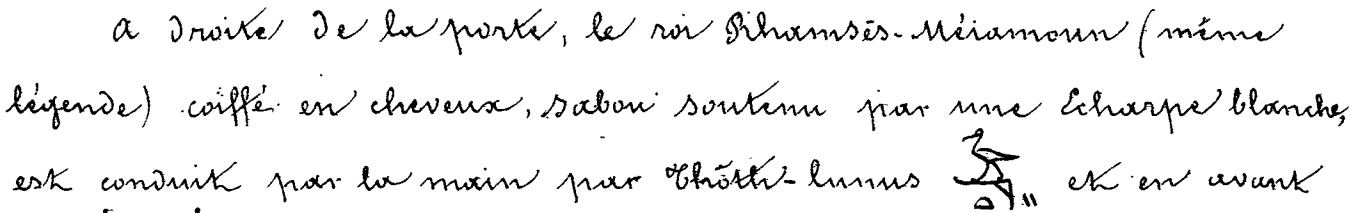 A droite de la porte, le roi Rhamsès-Méiamoun (même
légende) coiffé en cheveux, sabou soutenu par une Echarpe blanche,
est conduit par la main par Thôth-lunus 𓅝 et en avant